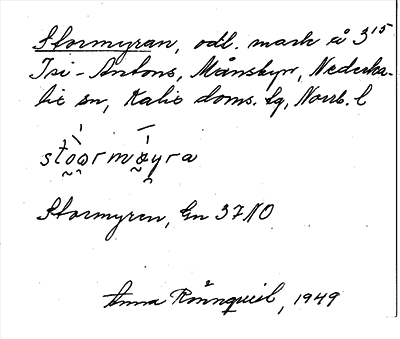 Stormyran, odl. mark å 3¹⁵
Isi-Antons, Månsbyn, Nederka-
lix sn, Kalix doms. tg, Norrb. l
stoormøyra
Stormyren, Gn 37 NO
Anna Rönnqvist, 1949